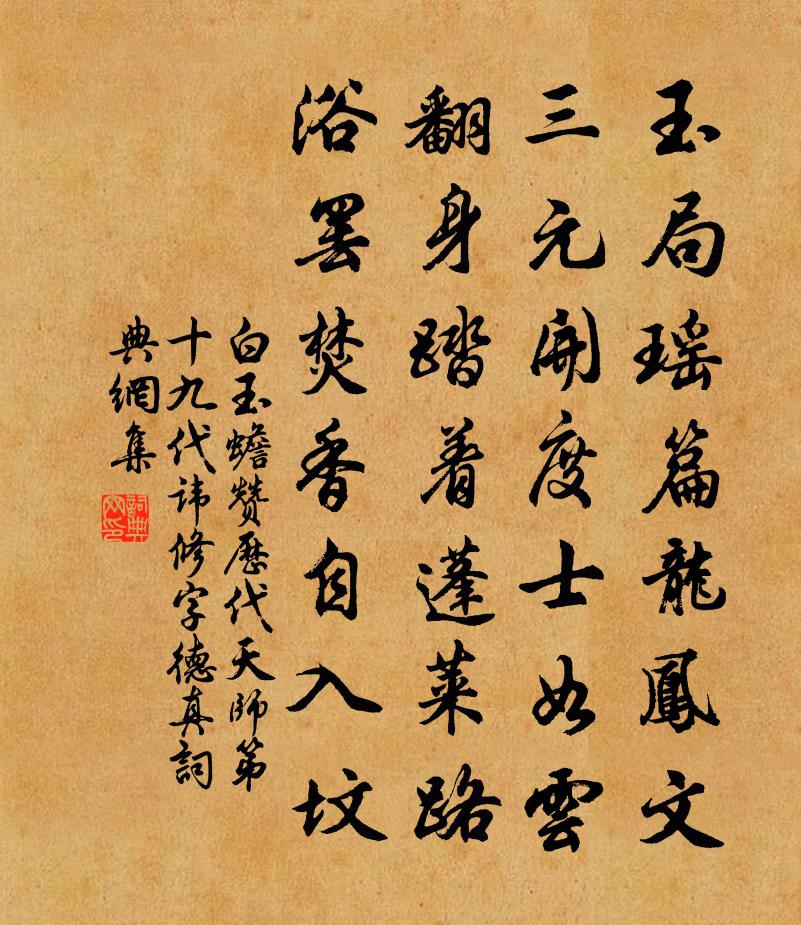 玉局瑶篇龍鳳文
三元開度士如雲
翻身踏着蓬萊路
浴罷焚香自入墳
白玉蟾赞歷代天師第
十九代諱修字德真詞
典網集
詞典
網印